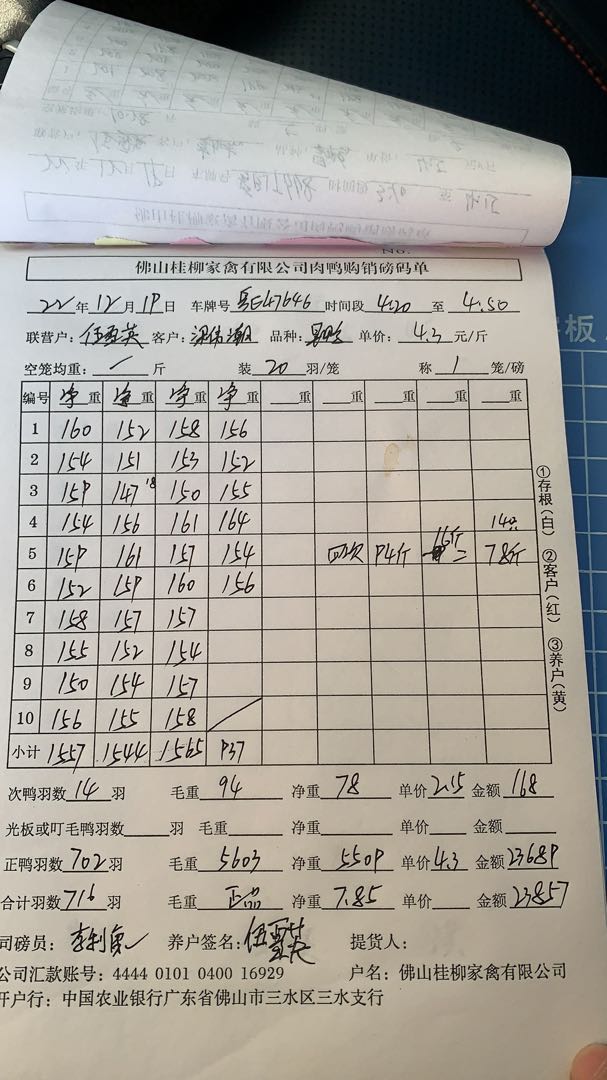 No.
佛山桂柳家禽有限公司肉鸭购销磅码单
22年12月19日 车牌号 粤E47646 时间段 4.20 至 4.50
联营户: 客户: 品种: 单价: 4.3 元/斤
空笼均重: / 斤 装 20 羽/笼 称 1 笼/磅
编号 净重 净重 净重 净重 重 重 重 重 重
1 160 152 158 156
2 154 151 153 152
3 159 147 18 150 155
4 154 156 161 164 14只
5 159 161 157 154 四次 94斤 16斤 = 78斤
6 152 159 160 156
7 158 157 157
8 155 152 154
9 150 154 157
10 156 155 158
小计 1557 1544 1565 937
次鸭羽数 14 羽 毛重 94 净重 78 单价 2.15 金额 168
光板或叮毛鸭羽数 羽 毛重 净重 单价 金额
正鸭羽数 702 羽 毛重 5603 净重 5509 单价 4.3 金额 23689
合计羽数 716 羽 毛重 正品 净重 7.85 单价 金额 23857
司磅员: 养户签名: 提货人:
公司汇款账号: 4444 0101 0400 16929 户名: 佛山桂柳家禽有限公司
开户行: 中国农业银行广东省佛山市三水区三水支行
①存根(白) ②客户(红) ③养户(黄)
板